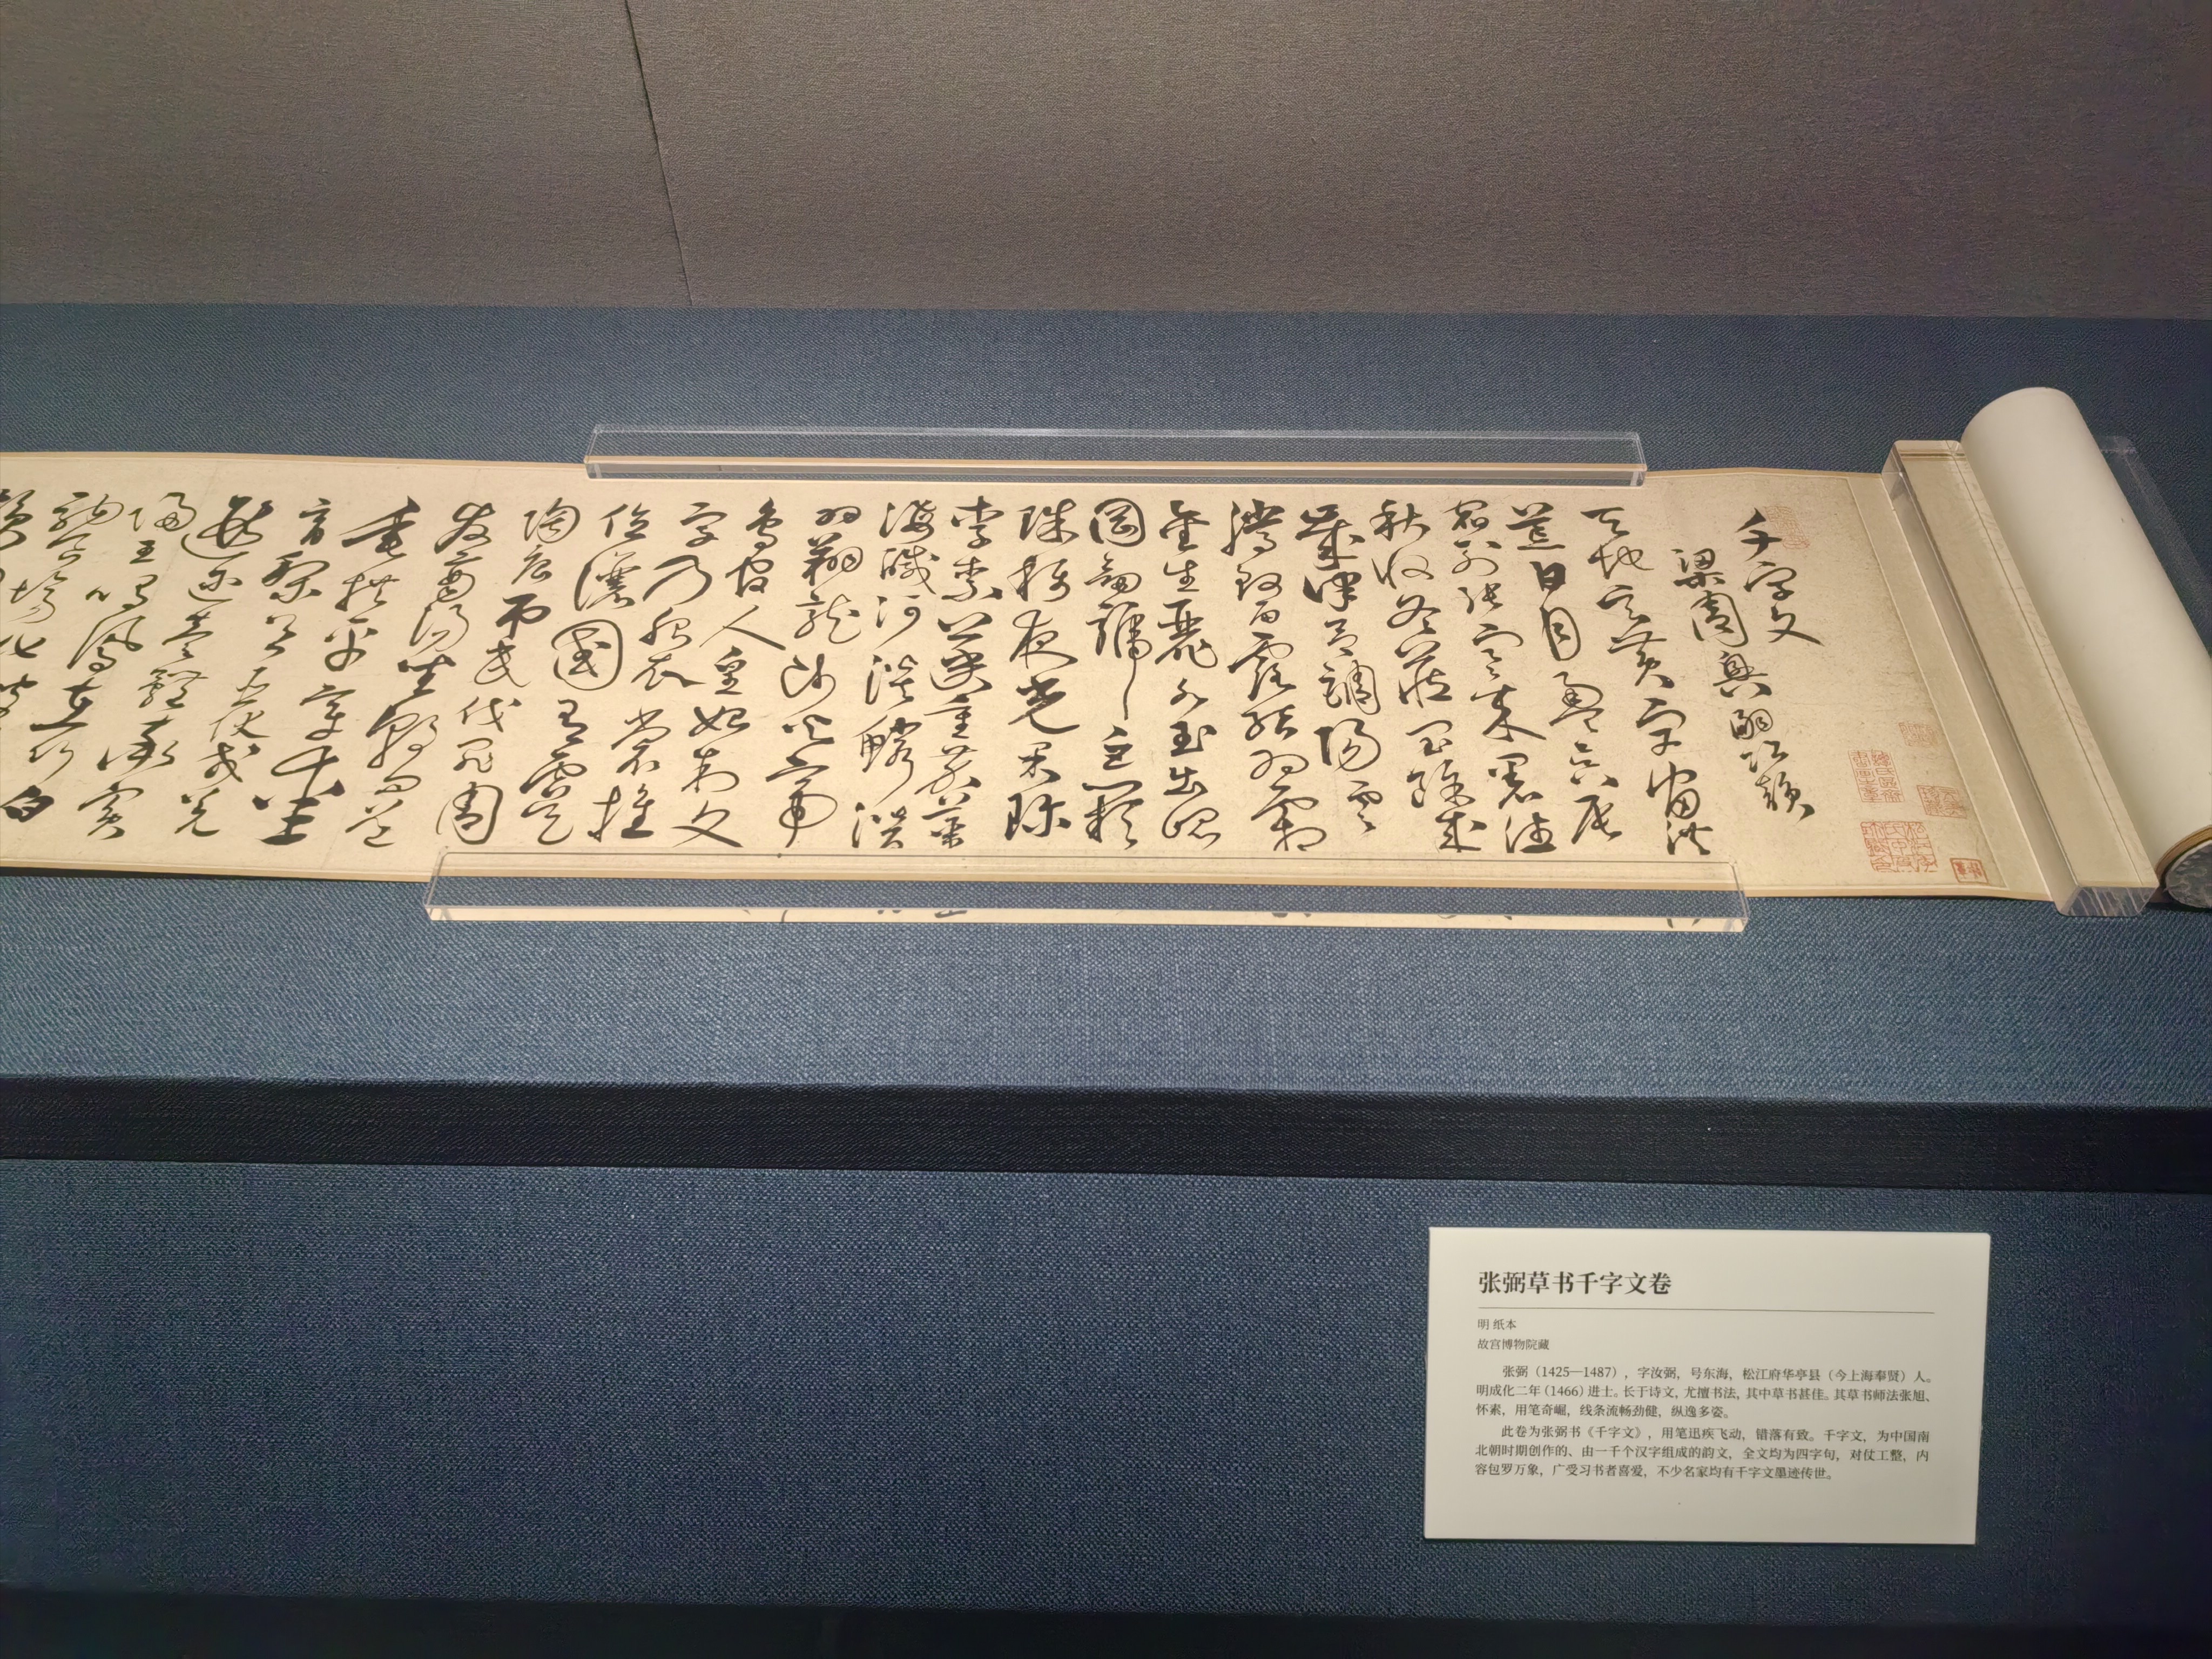 千字文
梁周興嗣次韻
天地玄黃宇宙洪
荒日月盈昃辰
宿列張寒來暑往
秋收冬藏閏餘成
歲律呂調陽雲
騰致雨露結為霜
金生麗水玉出崑
岡劍號巨闕
珠稱夜光果珍
李柰菜重芥薑
海鹹河淡鱗潛
羽翔龍師火帝
鳥官人皇始制文
字乃服衣裳推
位讓國有虞
陶唐弔民伐罪周
發商湯坐朝問道
垂拱平章愛
育黎首臣伏戎羌
遐邇壹體率賓
歸王鳴鳳在竹白
駒食場化被
张弼草书千字文卷
明 纸本
故宫博物院藏
张弼（1425—1487），字汝弼，号东海，松江府华亭县（今上海奉贤）人。
明成化二年（1466）进士。长于诗文，尤擅书法，其中草书甚佳。其草书师法张旭、
怀素，用笔奇崛，线条流畅劲健，纵逸多姿。
此卷为张弼书《千字文》，用笔迅疾飞动，错落有致。千字文，为中国南
北朝时期创作的、由一千个汉字组成的韵文，全文均为四字句，对仗工整，内
容包罗万象，广受习书者喜爱，不少名家均有千字文墨迹传世。